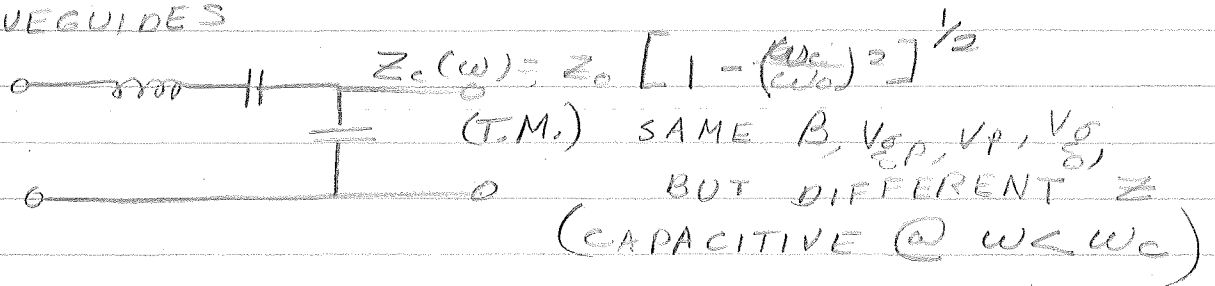 VEGUIDES
Zc(ω) = Z₀ [1 - (ωc/ω)²]^1/2
(T.M.) SAME β, Vgp, Vp, Vg,
BUT DIFFERENT Z
(CAPACITIVE @ ω < ωc)